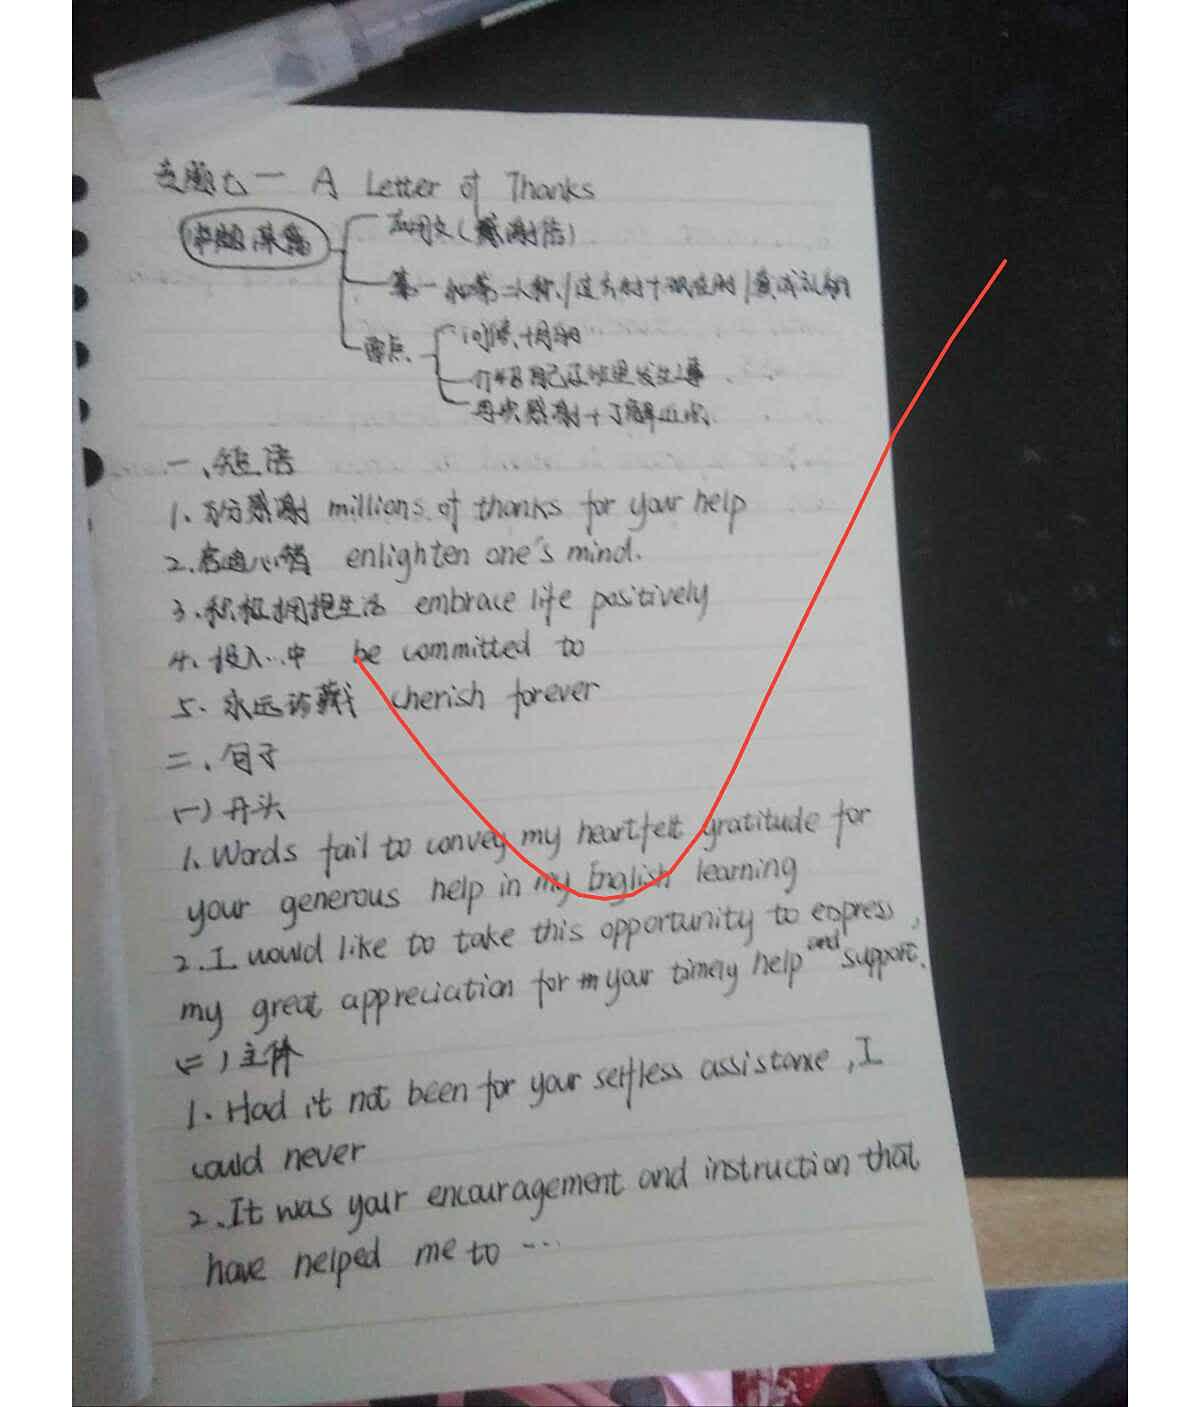 专题七一 A Letter of Thanks
审题谋篇
应用文(感谢信)
第一和第二人称/过去时+现在时/真诚礼貌
要点
问候+目的
介绍自己在班里发生
再次感谢+
一、短语
1、万分感谢 millions of thanks for your help
2.启迪心智 enlighten one's mind.
3.积极拥抱生活 embrace life positively
4、投入…中 be committed to
5.永远珍藏 cherish forever
二、句子
(一)开头
1. Words fail to convey my heartfelt gratitude for
your generous help in my English learning
2.I would like to take this opportunity to express
my great appreciation for your timely help and support.
(二)主体
1. Had it not been for your selfless assistance, I
could never
2.It was your encouragement and instruction that
have helped me to …